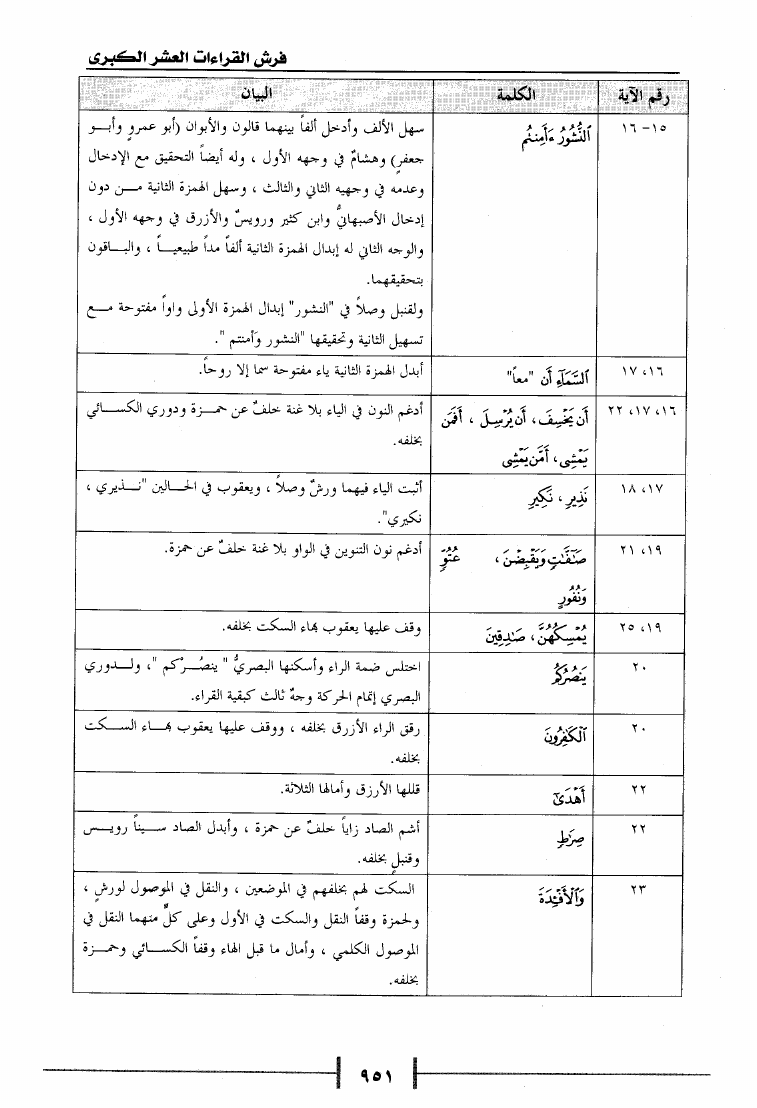 فرش القراءات العشر الكبرى
رقم الآية الكلمة البيان
١٥-١٦ ٱلنُّشُورُ ءَأَمِنتُم سهل الألف وأدخل ألفاً بينهما قالون والأبوان (أبو عمروٍ وأبـو
جعفرٍ) وهشامٌ في وجهه الأول ، وله أيضاً التحقيق مع الإدخال
وعدمه في وجهيه الثاني والثالث ، وسهل الهمزة الثانية مـن دون
إدخال الأصبهانيُّ وابن كثير ورويسٌ والأزرق في وجهه الأول ،
والوجه الثاني له إبدال الهمزة الثانية ألفاً مداً طبيعيـاً ، والبـاقون
بتحقيقهما.
ولقنبل وصلاً في "النشور" إبدال الهمزة الأولى واواً مفتوحة مـع
تسهيل الثانية وتحقيقها "النشور وَأمنتم ".
١٦، ١٧ ٱلسَّمَآءِ أَن "معاً" أبدل الهمزة الثانية ياء مفتوحة سما إلا روحاً.
١٦، ١٧، ٢٢ أَن يَخْسِفَ، أَن يُرْسِلَ ، أَفَمَن أدغم النون في الياء بلا غنة خلفٌ عن حمـزة ودوري الكسـائي
يَمْشِى، أَمَّن يَمْشِى بخلفه.
١٧، ١٨ نَذِيرِ، نَكِيرِ أثبت الياء فيهما ورشٌ وصلاً ، ويعقوب في الحـالين "نـذيري ،
نكيري".
١٩، ٢١ صَـٰٓفَّـٰتٍ وَيَقْبِضْنَ، عُتُوٍّ أدغم نون التنوين في الواو بلا غنة خلفٌ عن حمزة.
وَنُفُورٍ
١٩، ٢٥ يُمْسِكُهُنَّ، صَـٰدِقِينَ وقف عليها يعقوب بهاء السكت بخلفه.
٢٠ يَنصُرُكُم اختلس ضمة الراء وأسكنها البصريُّ " ينصُـرْكم "، ولـدوري
البصري إتمام الحركة وجهٌ ثالث كبقية القراء.
٢٠ ٱلْكَـٰفِرُونَ رقق الراء الأزرق بخلفه ، ووقف عليها يعقوب بهـاء السـكت
بخلفه.
٢٢ أَهْدَىٰٓ قللها الأزرق وأمالها الثلاثة.
٢٢ صِرَٰطٍ أشم الصاد زاياً خلفٌ عن حمزة ، وأبدل الصاد سـيناً رويـس
وقنبلٍ بخلفه.
٢٣ وَٱلْأَفْـِٔدَةَ السكت لهم بخلفهم في الموضعين ، والنقل في الموصول لورشٍ ،
ولحمزة وقفاً النقل والسكت في الأول وعلى كلٍّ منهما النقل في
الموصول الكلمي ، وأمال ما قبل الهاء وقفاً الكسـائي وحمـزة
بخلفه.
٩٥١